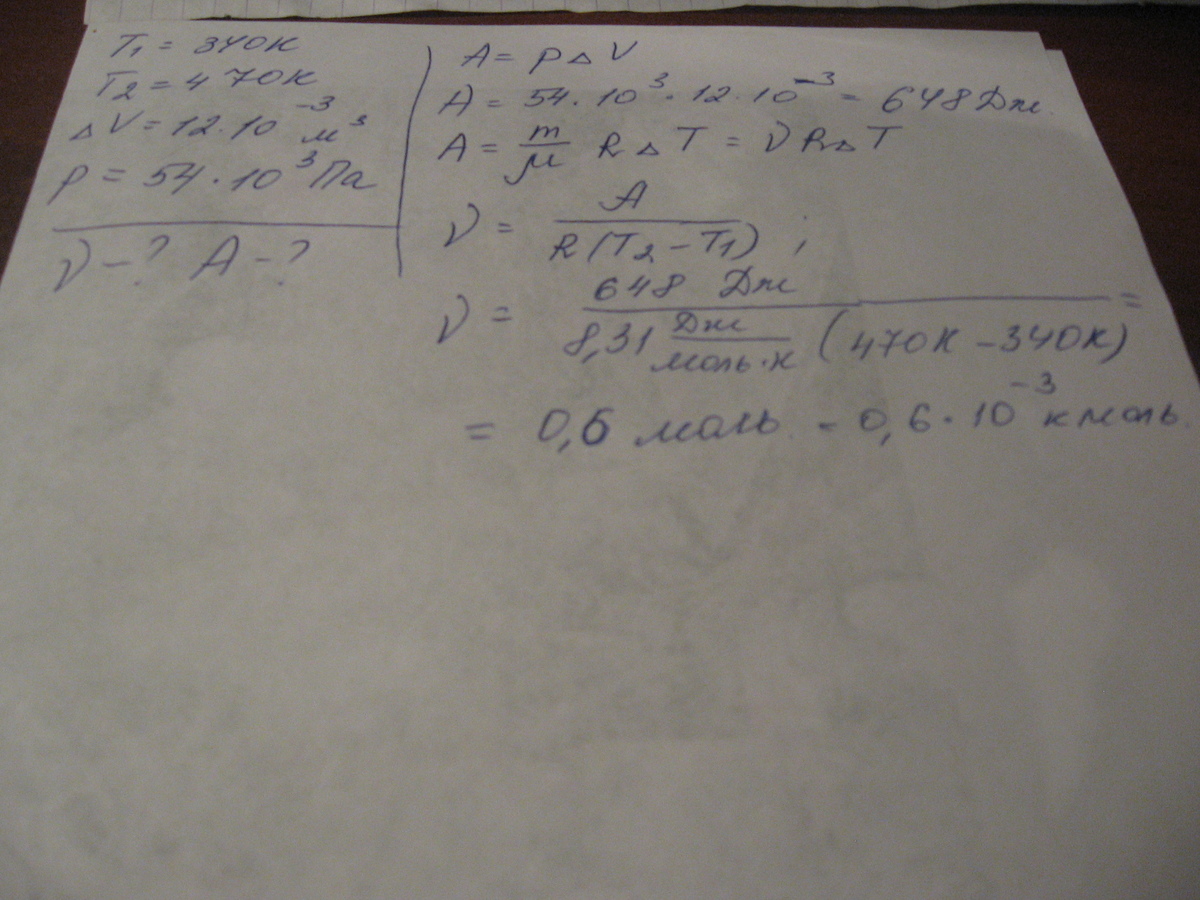 T₁ = 340К
T₂ = 470К
ΔV = 12·10⁻³ м³
p = 54·10³ Па
ν - ? A - ?
A = pΔV
A = 54·10³·12·10⁻³ = 648 Дж.
A = m/μ RΔT = νRΔT
ν = A / R(T₂ - T₁) ;
ν = 648 Дж / 8,31 Дж/моль·К (470К - 340К) =
= 0,6 моль. = 0,6·10⁻³ кмоль.